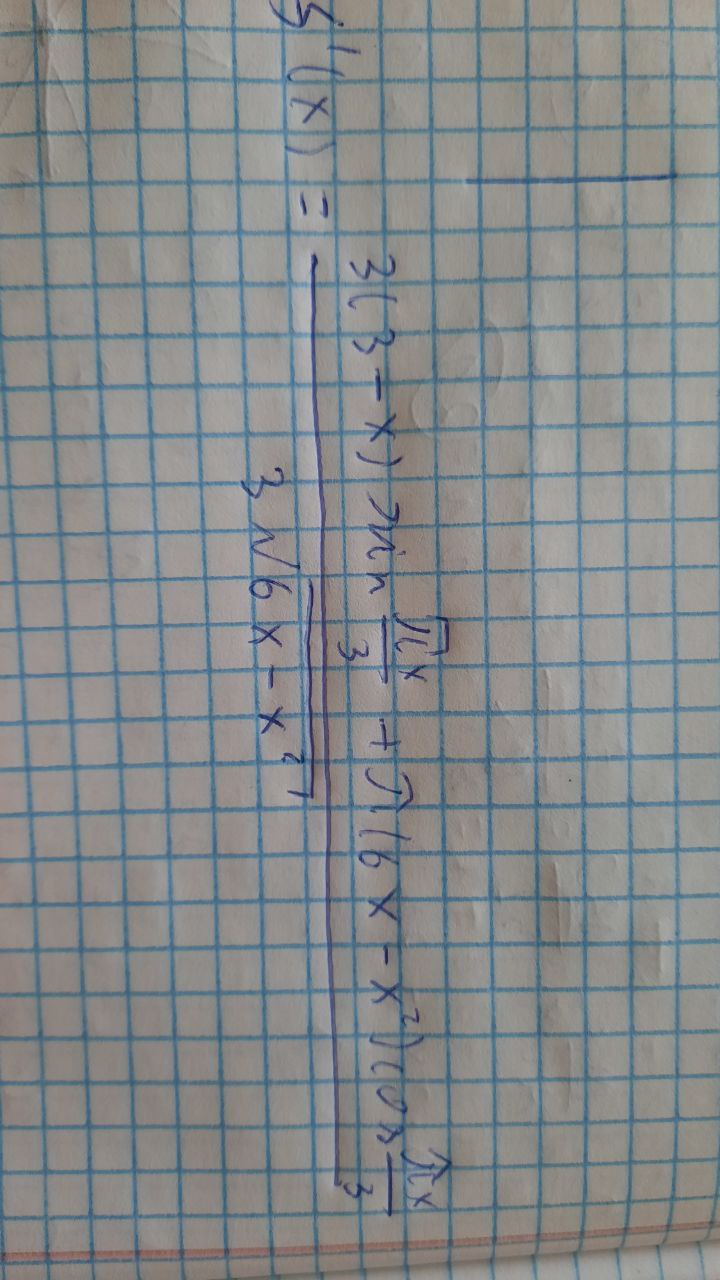 f'(x) = \frac{3(3-x) \sin \frac{\pi x}{3} + \pi(6x-x^2) \cos \frac{\pi x}{3}}{3\sqrt{6x-x^2}}